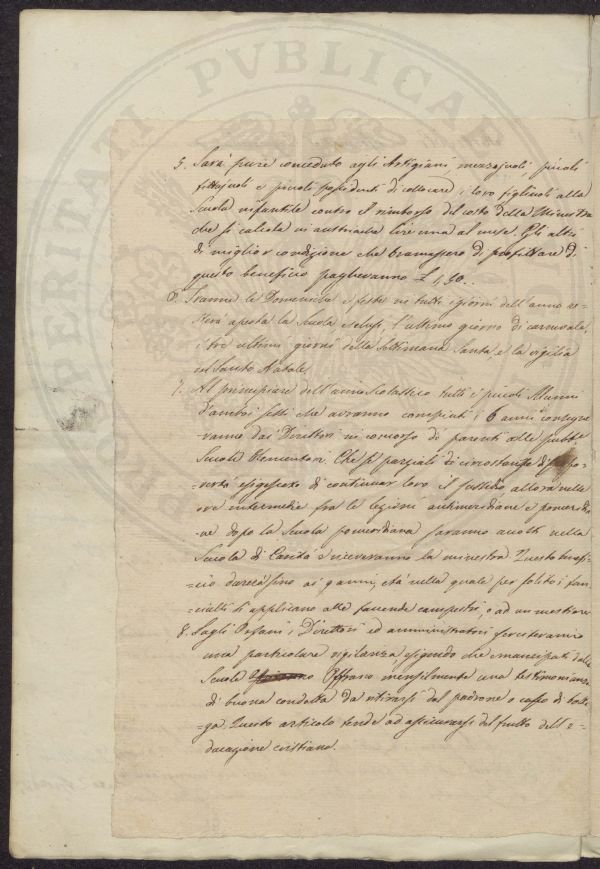 PERITATI PVBLICAE
5. Sarà pure conceduto agli Artigiani, mezzajuoli, piccoli
fittajuoli e piccoli possidenti di collocare i loro figliuoli alla
Scuola infantile contro il rimborso del costo della Minestra
che si calcola in austriache lire una al mese. Gli altri
di miglior condizione che bramassero di profittare di
questo beneficio pagheranno £ 1,50..
6. Tranne le Domeniche e feste in tutti i giorni dell'anno re-
=sterà aperta la Scuola esclusi, l'ultimo giorno di carnovale,
i tre ultimi giorni della Settimana Santa, e la vigilia
del Santo Natale.
7. Al principiare dell'anno Scolastico tutti i piccoli Alunni
d'ambo i sessi che avranno compiuti i 6 anni consegne
ranno dai Direttori in concorso di parenti alle pubb.e
Scuole Elementari. Che se parziali di circostanze di po-
=vertà esigessero di continuar loro il sussidio, allora nelle
ore intermedie fra le lezioni antimeridiane e pomeridia
=ne dopo la Scuola pomeridiana saranno accolti nella
Scuola di Carità e riceveranno la minestra. Questo benefi
=cio durerà sino ai 9 anni, età nella quale per solito i fan
=ciulli si applicano alle faccende campestri, o ad un mestiere
8. Sugli Orfani i Direttori ed amministratori eserciteranno
una particolare vigilanza, esigendo che emancipati dalla
Scuola offrano mensilmente una testimonianza
di buona condotta da ritirarsi dal padrone o capo di botte
=ga. Questo articolo tende ad assicurarsi del frutto dell'e-
ducazione cristiana.